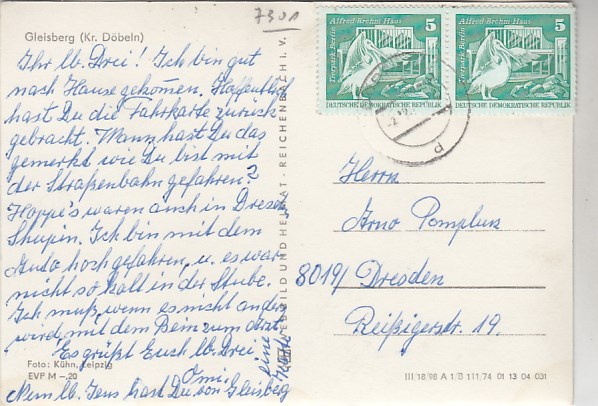 7301
Gleisberg (Kr. Döbeln)
Ihr lb. Drei! Ich bin gut
nach Hause gekommen. Hoffentlich
hast Du die Fahrkarte zurück
gebracht. Wann hast Du das
gemerkt wie Du bist mit
der Straßenbahn gefahren?
Hoppe's waren auch in Dresd.
Ich bin mit dem
Auto hochgefahren, u. es war
nicht so kalt in der Stube.
Ich muß, wenn es nicht anders
wird, mit dem Bein zum Arzt.
Es grüßt Euch lb. Drei
Omi.
Mein lb. Jens hast Du von Gleisberg
eine Karte
Foto: Kühn, Leipzig
EVP M –,20
BILD UND HEIMAT · REICHENBACH I. V.
Alfred Brehm Haus
Tierpark Berlin
5
DEUTSCHE DEMOKRATISCHE REPUBLIK
Alfred Brehm Haus
Tierpark Berlin
5
DEUTSCHE DEMOKRATISCHE REPUBLIK
Herrn
Arno Pomplun
8019/ Dresden
Reißigerstr. 19.
III/18/98 A 1/B 111/74 01 13 04 031